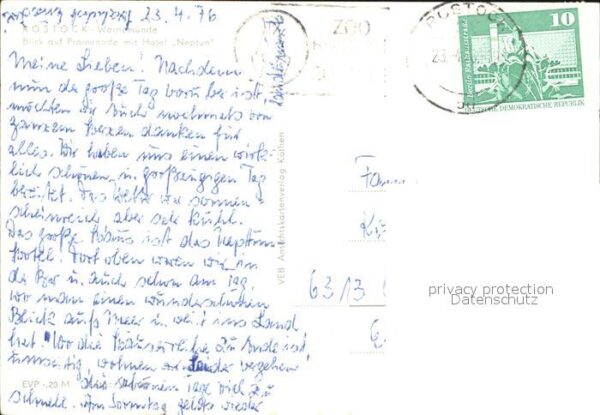 23.4.76
ROSTOCK - Warnemünde
Blick auf Promenade mit Hotel „Neptun"
Meine Lieben! Nachdem
nun der große Tag vorüber ist,
möchten wir Euch nochmals von
ganzem Herzen danken für
alles. Wir haben uns einen wirk-
lich schönen u. großzügigen Tag
bereitet. Das Wetter war sonnen-
scheinreich aber sehr kühl.
Das große Haus ist das Neptun-
hotel. Dort oben waren wir in
der Bar u. auch schon am Tag,
wo man einen wunderschönen
Blick aufs Meer u. weit ins Land
hat. Wo die Häuserreihe zu Ende ist,
wohnen wir. Leider vergehen
die schönen Tage viel zu
schnell. Am Sonntag geht's wieder
EVP -,20 M
VEB Ansichtskartenverlag Köthen
ZOO
ROSTOCK
23.4
10
DEUTSCHE DEMOKRATISCHE REPUBLIK
Fam
6313
privacy protection
Datenschutz